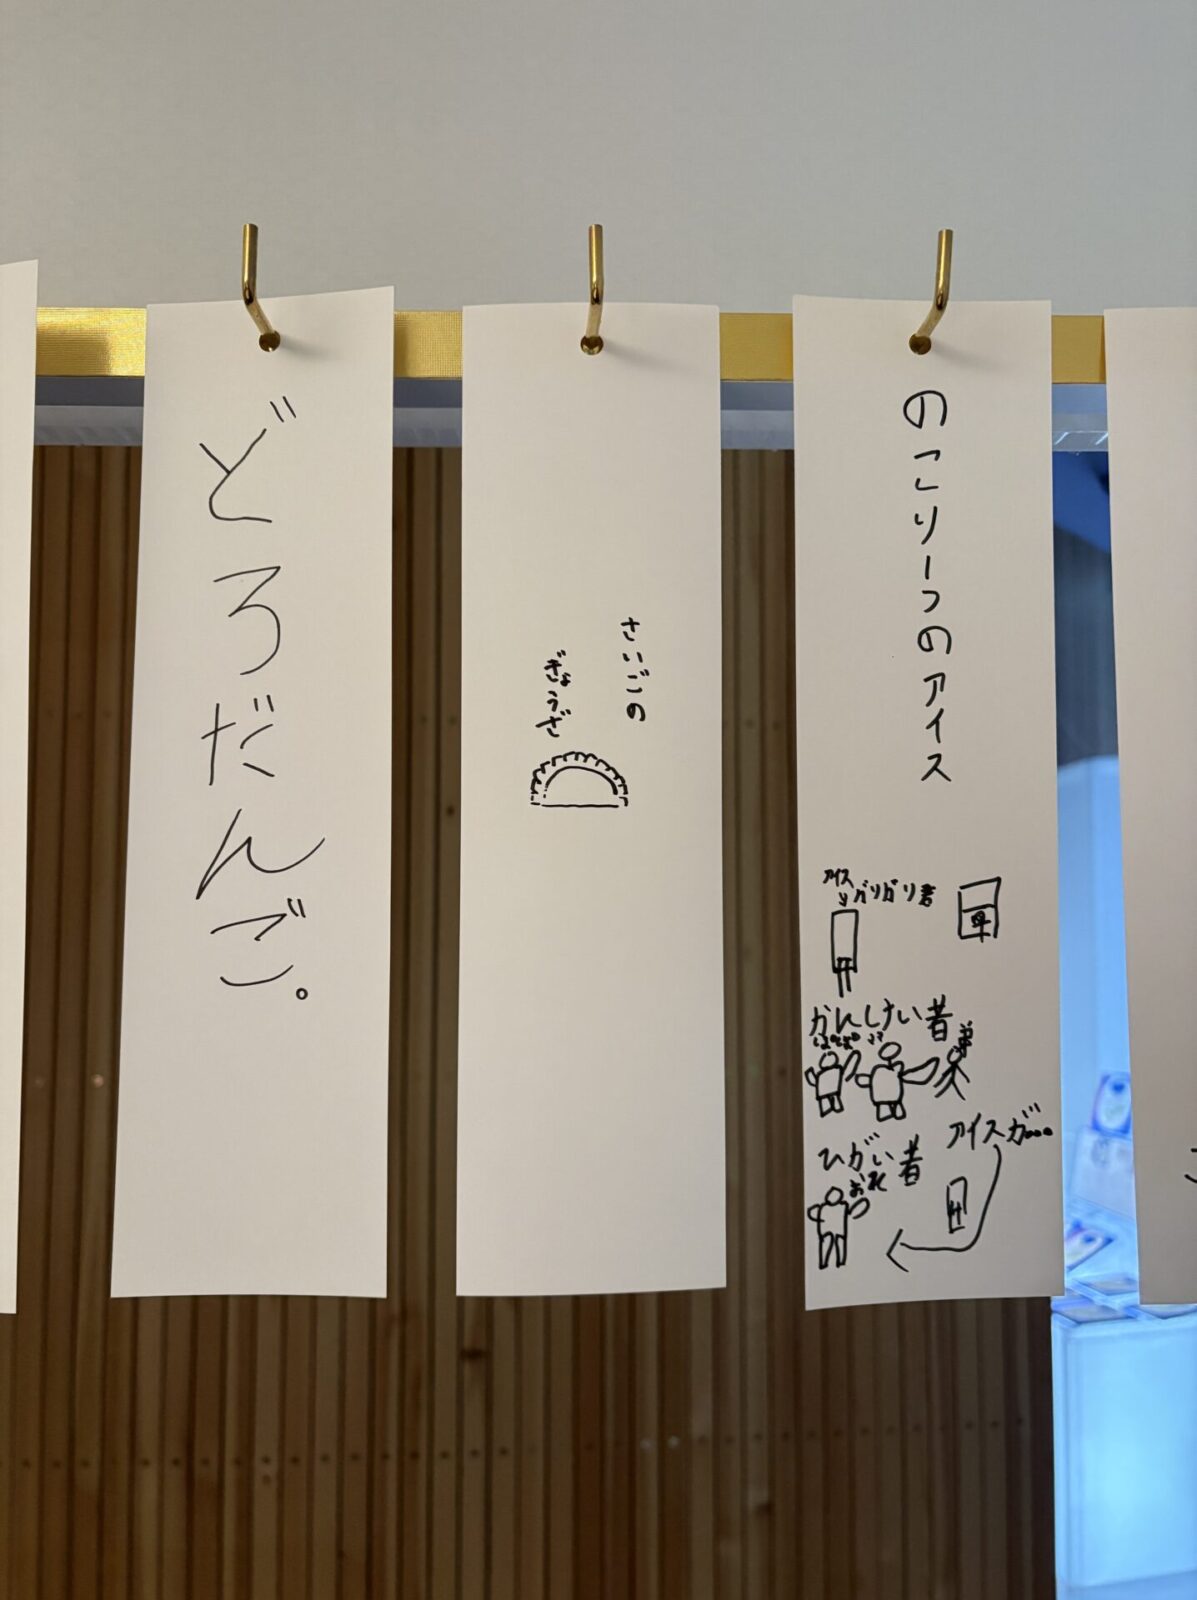 のこり一つのアイス
アイス
ガリガリ君
かんけい者
弟
ひがい者
おれ
アイスが...
さいごの
ぎょうざ
どろだんご。